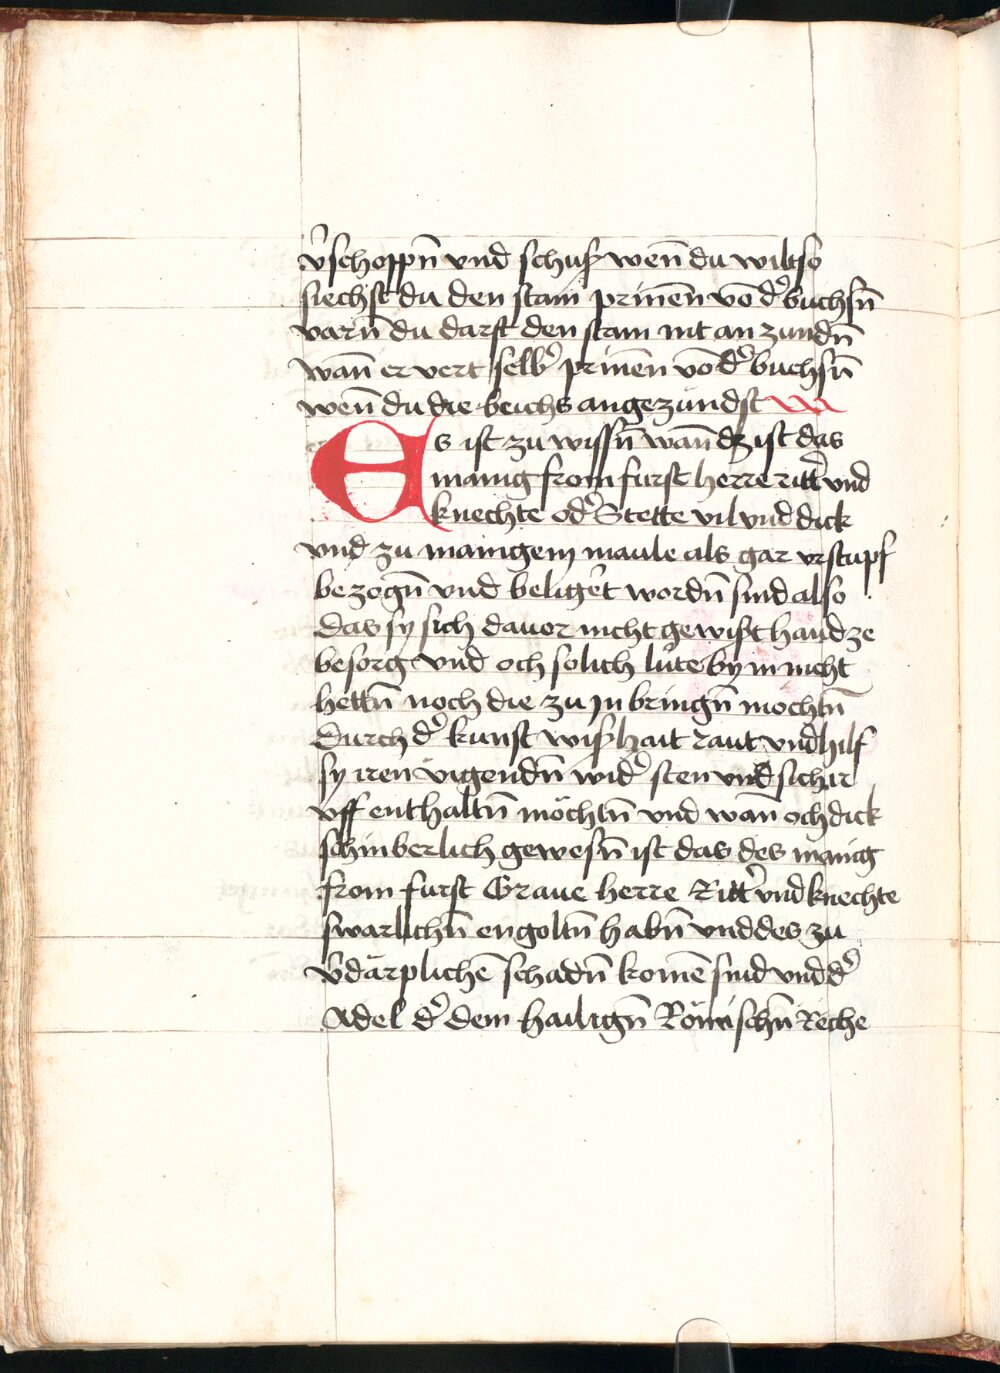 v̾schoppn̄ vnd schuß wen̄ du wilt so
siechst du den stain prinnēn vō d̾ buchsn̄
varn̄ du darft den stain nit an zundn̄
wan̄ er vert selb̾ prinnēn vō d̾ buchsn̄
wen̄ du die beichs angezündst
Es ist zu wissn̄ wan̄ dz ist das
mainig from furst herre ritt̾ vnd
knechte od̾ Stette vil vnd dick
vnd zu mainigem maule als gar vrstupf
bezogn̄ vnd beliget wordn̄ sind also
das sy sich dauor nicht gewist hand ze
besorg vnd och solich lüte by in nicht
hettn̄ noch die zu jn bringn̄ mochtn̄
durch d̾ kunst wißhait raut vnd hilf
sy iren vigendn̄ wid̾ sten vnd sich ir
vff enthaltn̄ möchtn̄ vnd wan̄ och dick
schinberlich gewesn̄ ist das des manig
from furst Graue herre Ritt̾ vnd knechte
swarlichn̄ engoltn̄ habn̄ vnd des zu
v̾därplichē schadn̄ komē sind vnd d̾
Adel d̾ dem hailign̄ Römischn̄ Reche